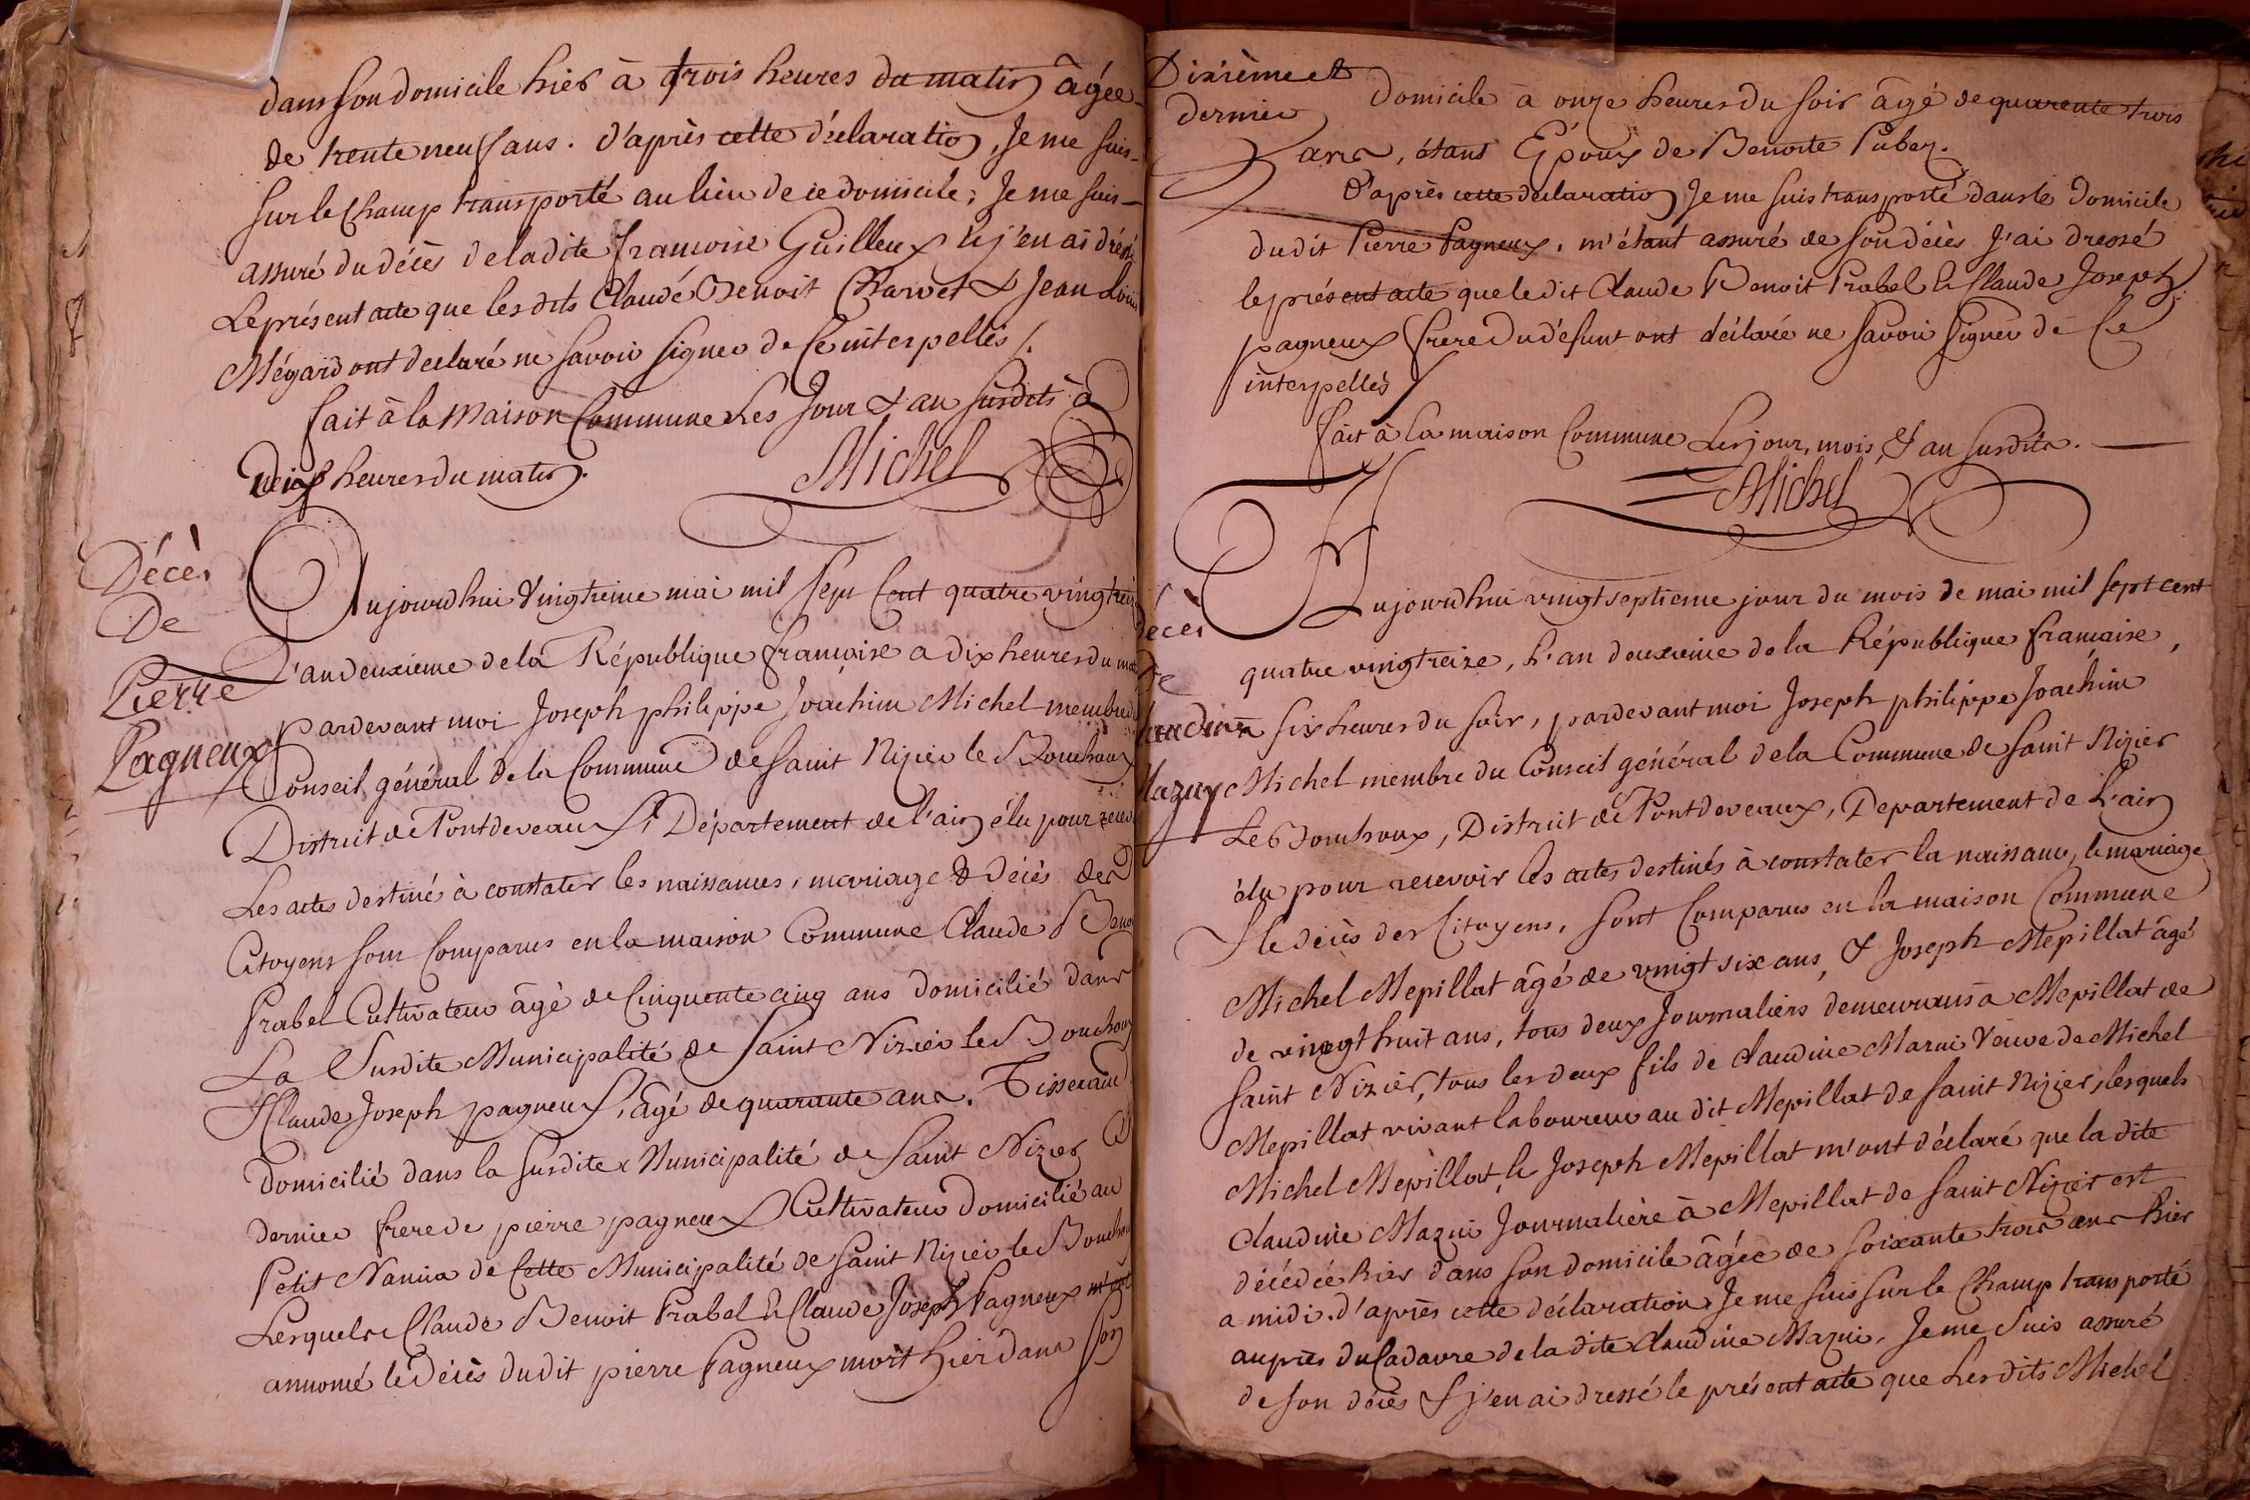 dans son domicile hier à trois heures du matin âgée
de trente neuf ans. d'après cette déclaration, Je me suis
sur le champ transporté au lieu de ce domicile; Je me suis
assuré du décès de la dite francoise Guilleux & j'en ai dréssé
Le présent acte que les dits Claude Benoit Charvet & Jean Louis
Mégard ont declaré ne savoir signer de Ce interpellés /.
fait à la Maison Commune Les Jour & an susdits à
heures du matin.
Michel
Décès
De
Pierre
Pagneux
Aujourdhui Vingtreme mai mil sept Cent quatre vingt treize
L'an deuxieme de la République francoise a dix heures du matin
pardevant moi Joseph philippe Joachim Michel membre du
Conseil général de la Commune de Saint Nizier le Bouchoux
District de Pontdeveaux, Département de l'ain élu pour recevoir
Les actes destiné à constater les naissances, mariage & décès des
Citoyens sont Comparus en la maison Commune Claude Benoit
Prabel Cultivateur âgé de Cinquente cinq ans domicilié dans
La Susdite Municipalité de Saint Nizier le Bouchoux
& Claude Joseph pagneux, âgé de quarante ans. Tisserand
Domicilié dans la susdite Municipalité de Saint Nizier Ce
dernier frere de pierre pagneux Cultivateur domicilié au
Petit Namia de Cette Municipalité de Saint Nizier le Bouchoux
Lesquels Claude Benoit Prabel & Claude Joseph Pagneux m'ont
annoncé le Décès du dit pierre Pagneux mort hier dans son
Dixième et
dernier
Domicile à onze heures du soir âgé de quarente trois
ans, étant Époux de Benoite Pubez.
D'après cette déclaration, Je me suis transporté dans le Domicile
du dit Pierre Pagneux, m'étant assuré de son décès J'ai dressé
le présent acte que le dit Claude Benoit Prabel & Claude Joseph
pagneux frere du défunt ont déclarée ne savoir signer de Ce
interpellés /
fait à la maison Commune Les jour, mois, & an susdits.
Michel
Décès
De
Claudine
Mazuy
Aujourdhui vingt septieme jour du mois de mai mil sept cent
quatre vingt treize, L'an deuxieme de la République francaise,
a six heures du soir, pardevant moi Joseph philippe Joachim
Michel membre du Conseil général de la Commune de Saint Nizier
Le Bouchoux, District de Pontdeveaux, Departement de L'ain
élu pour recevoir les actes destinés à constater la naissance, le mariage
& le décès des Citoyens, sont Comparus en la maison Commune
Michel Mepillat âgé de vingt six ans, & Joseph Mepillat âgé
de vingt huit ans, tous deux Journaliers demeurans à Mepillat de
Saint Nizier, tous les deux fils de claudine Mazui Veuve de Michel
Mepillat vivant laboureur au dit Mepillat de saint Nizier, lesquels
Michel Mepillat, & Joseph Mepillat m'ont déclaré que la dite
Claudine Mazui Journalière à Mepillat de saint Nizier est
décédée hier dans son domicile âgée de soixante trois ans hier
a midi. d'après cette déclaration, Je me suis sur le Champ transporté
auprès du Cadavre de la dite Claudine Mazui, Je me suis assuré
de son décès & j'en ai dressé le présent acte que Les dits Michel